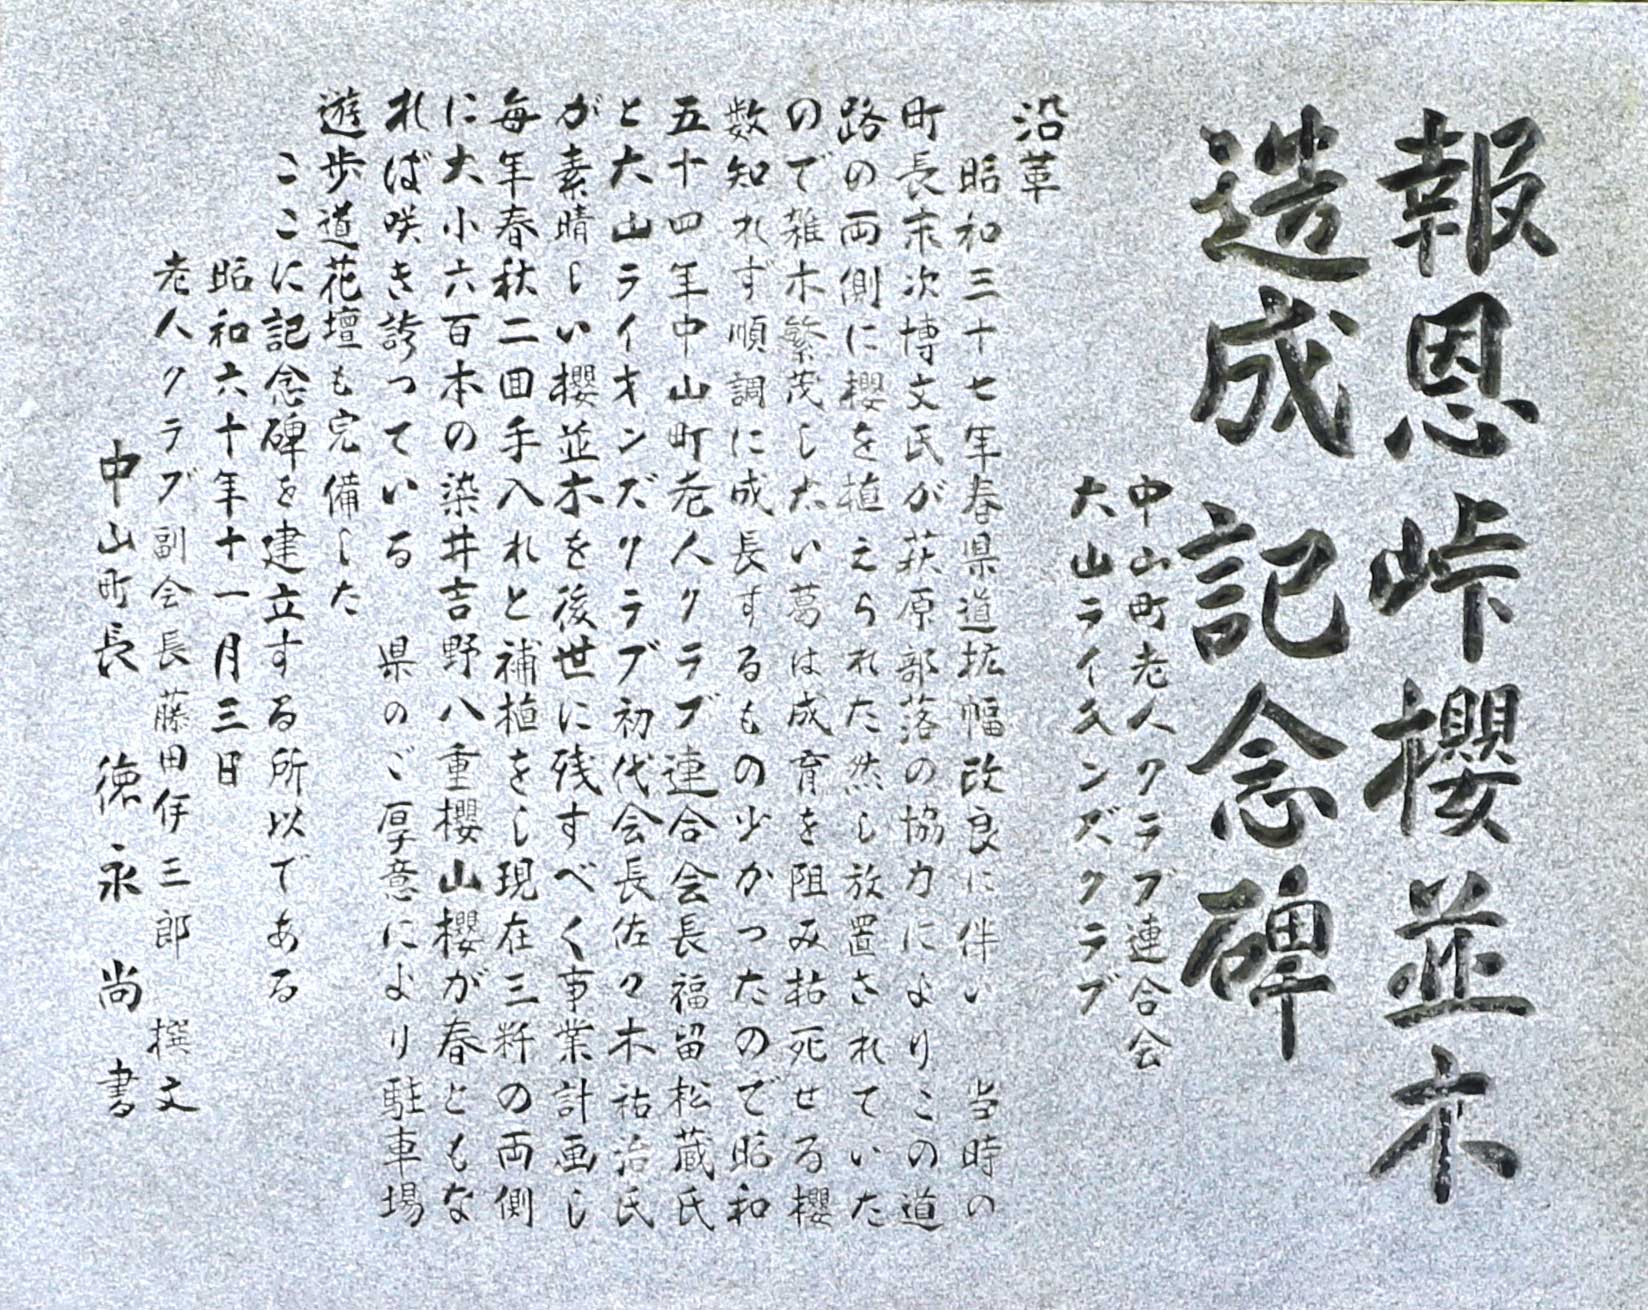 報恩峠櫻並木
造成記念碑
中山町老人クラブ連合会
大山ライオンズクラブ
沿革
昭和三十七年春県道拡幅改良に伴い　当時の
町長末次博文氏が萩原部落の協力によりこの道
路の両側に櫻を植えられた然し放置されていた
ので雑木繁茂し大い葛は成育を阻み枯死せる櫻
数知れず順調に成長するもの少かったので昭和
五十四年中山町老人クラブ連合会長福留松蔵氏
と大山ライオンズクラブ初代会長佐々木祐治氏
が素晴しい櫻並木を後世に残すべく事業計画し
毎年春秋二回手入れと補植をし現在三粁の両側
に大小六百本の染井吉野八重櫻山櫻が春ともな
れば咲き誇っている　県のご厚意により駐車場
遊歩道花壇も完備した
ここに記念碑を建立する所以である
昭和六十年十一月三日
老人クラブ副会長藤田伊三郎　撰文
中山町長　徳永尚　書